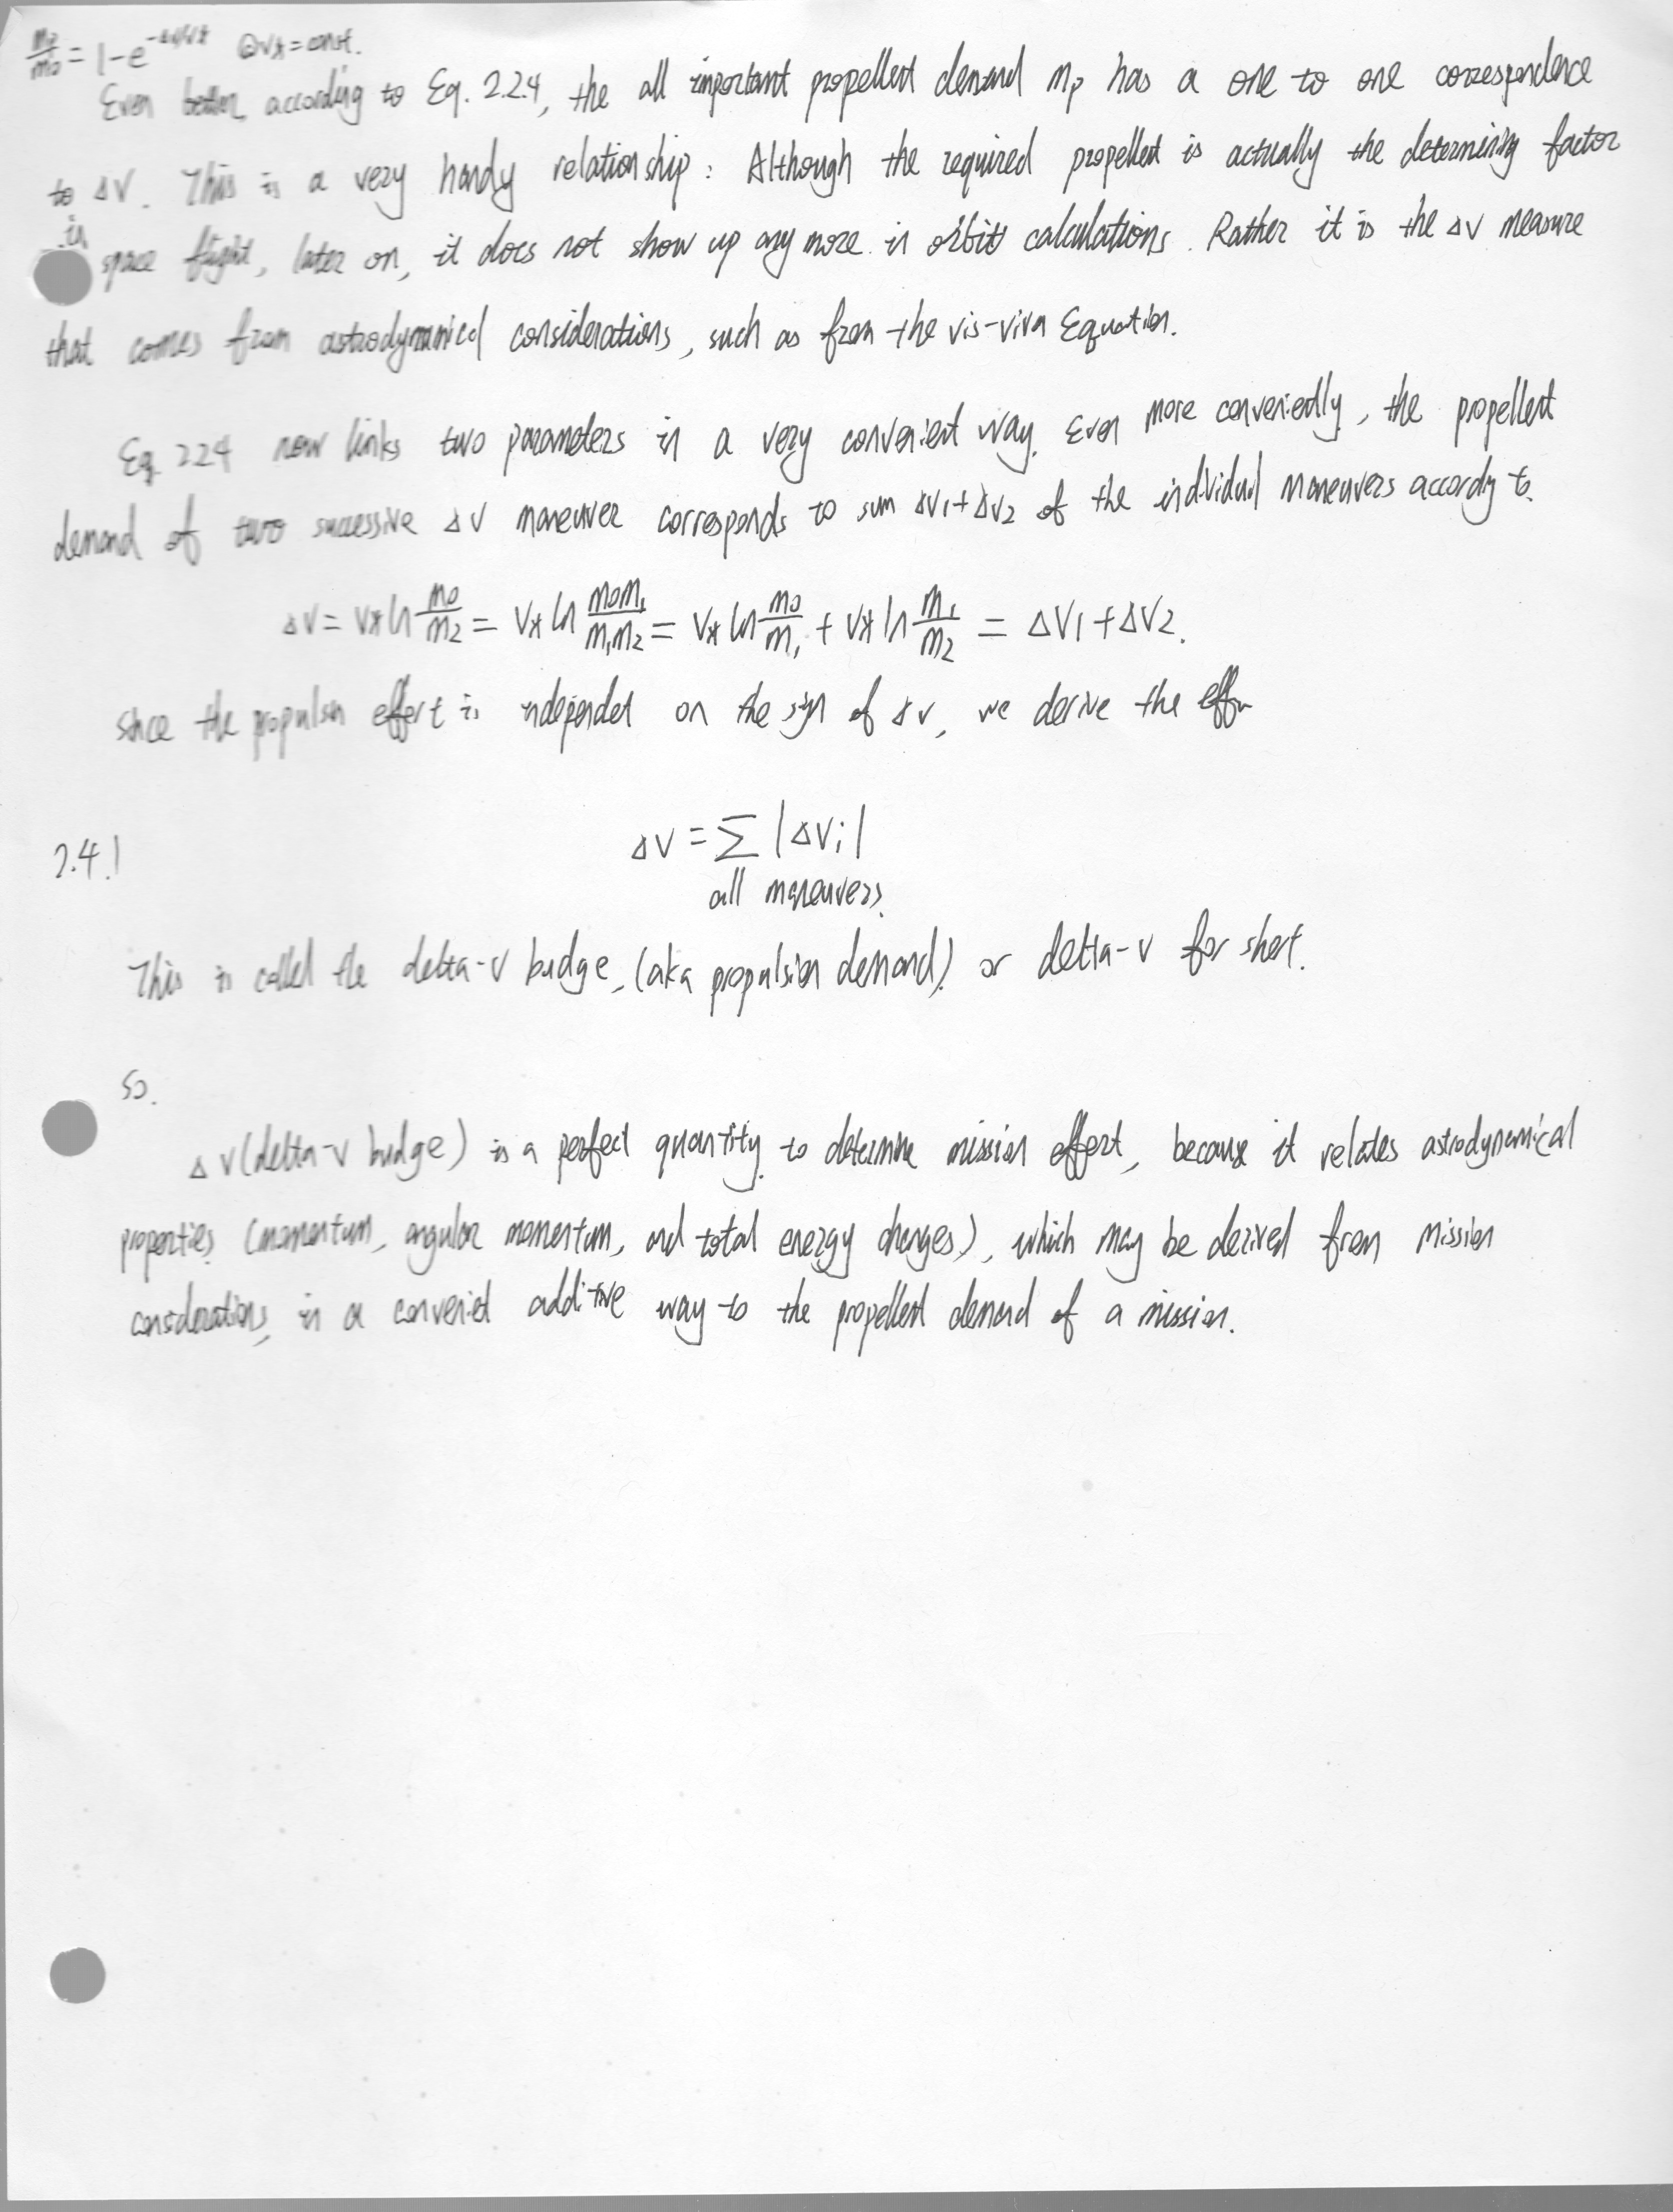 mp/m0 = 1-e^{-Δv/v*} @v*=const.
Even better, according to Eq. 2.2.4, the all important propellent demand mp has a one to one correspondence
to ΔV. This is a very handy relationship: Although the required propellent is actually the determining factor
in space flight, later on, it does not show up any more in orbit calculations. Rather it is the ΔV measure
that comes from astrodynamical considerations, such as from the vis-viva Equation.
Eq 224 now links two parameters in a very convenient way. Even more conveniently, the propellent
demand of two successive ΔV maneuver corresponds to sum ΔV1+ΔV2 of the individual maneuvers accordy to.
ΔV = V* ln m0/m2 = V* ln m0m1/m1m2 = V* ln m0/m1 + V* ln m1/m2 = ΔV1 + ΔV2.
since the propulsn effort is independet on the sign of ΔV, we derive the
ΔV = Σ |ΔVi|
2.4.1
all maneuvers.
This is called the delta-v budge, (aka propulsion demand) or delta-v for short.
so.
ΔV (delta-v budge) is a perfect quantity to determine mission effort, because it relates astrodynamical
properties (momentum, angular momentum, and total energy changes), which may be derived from mission
considerations, in a conveniet additive way to the propellent demand of a mission.